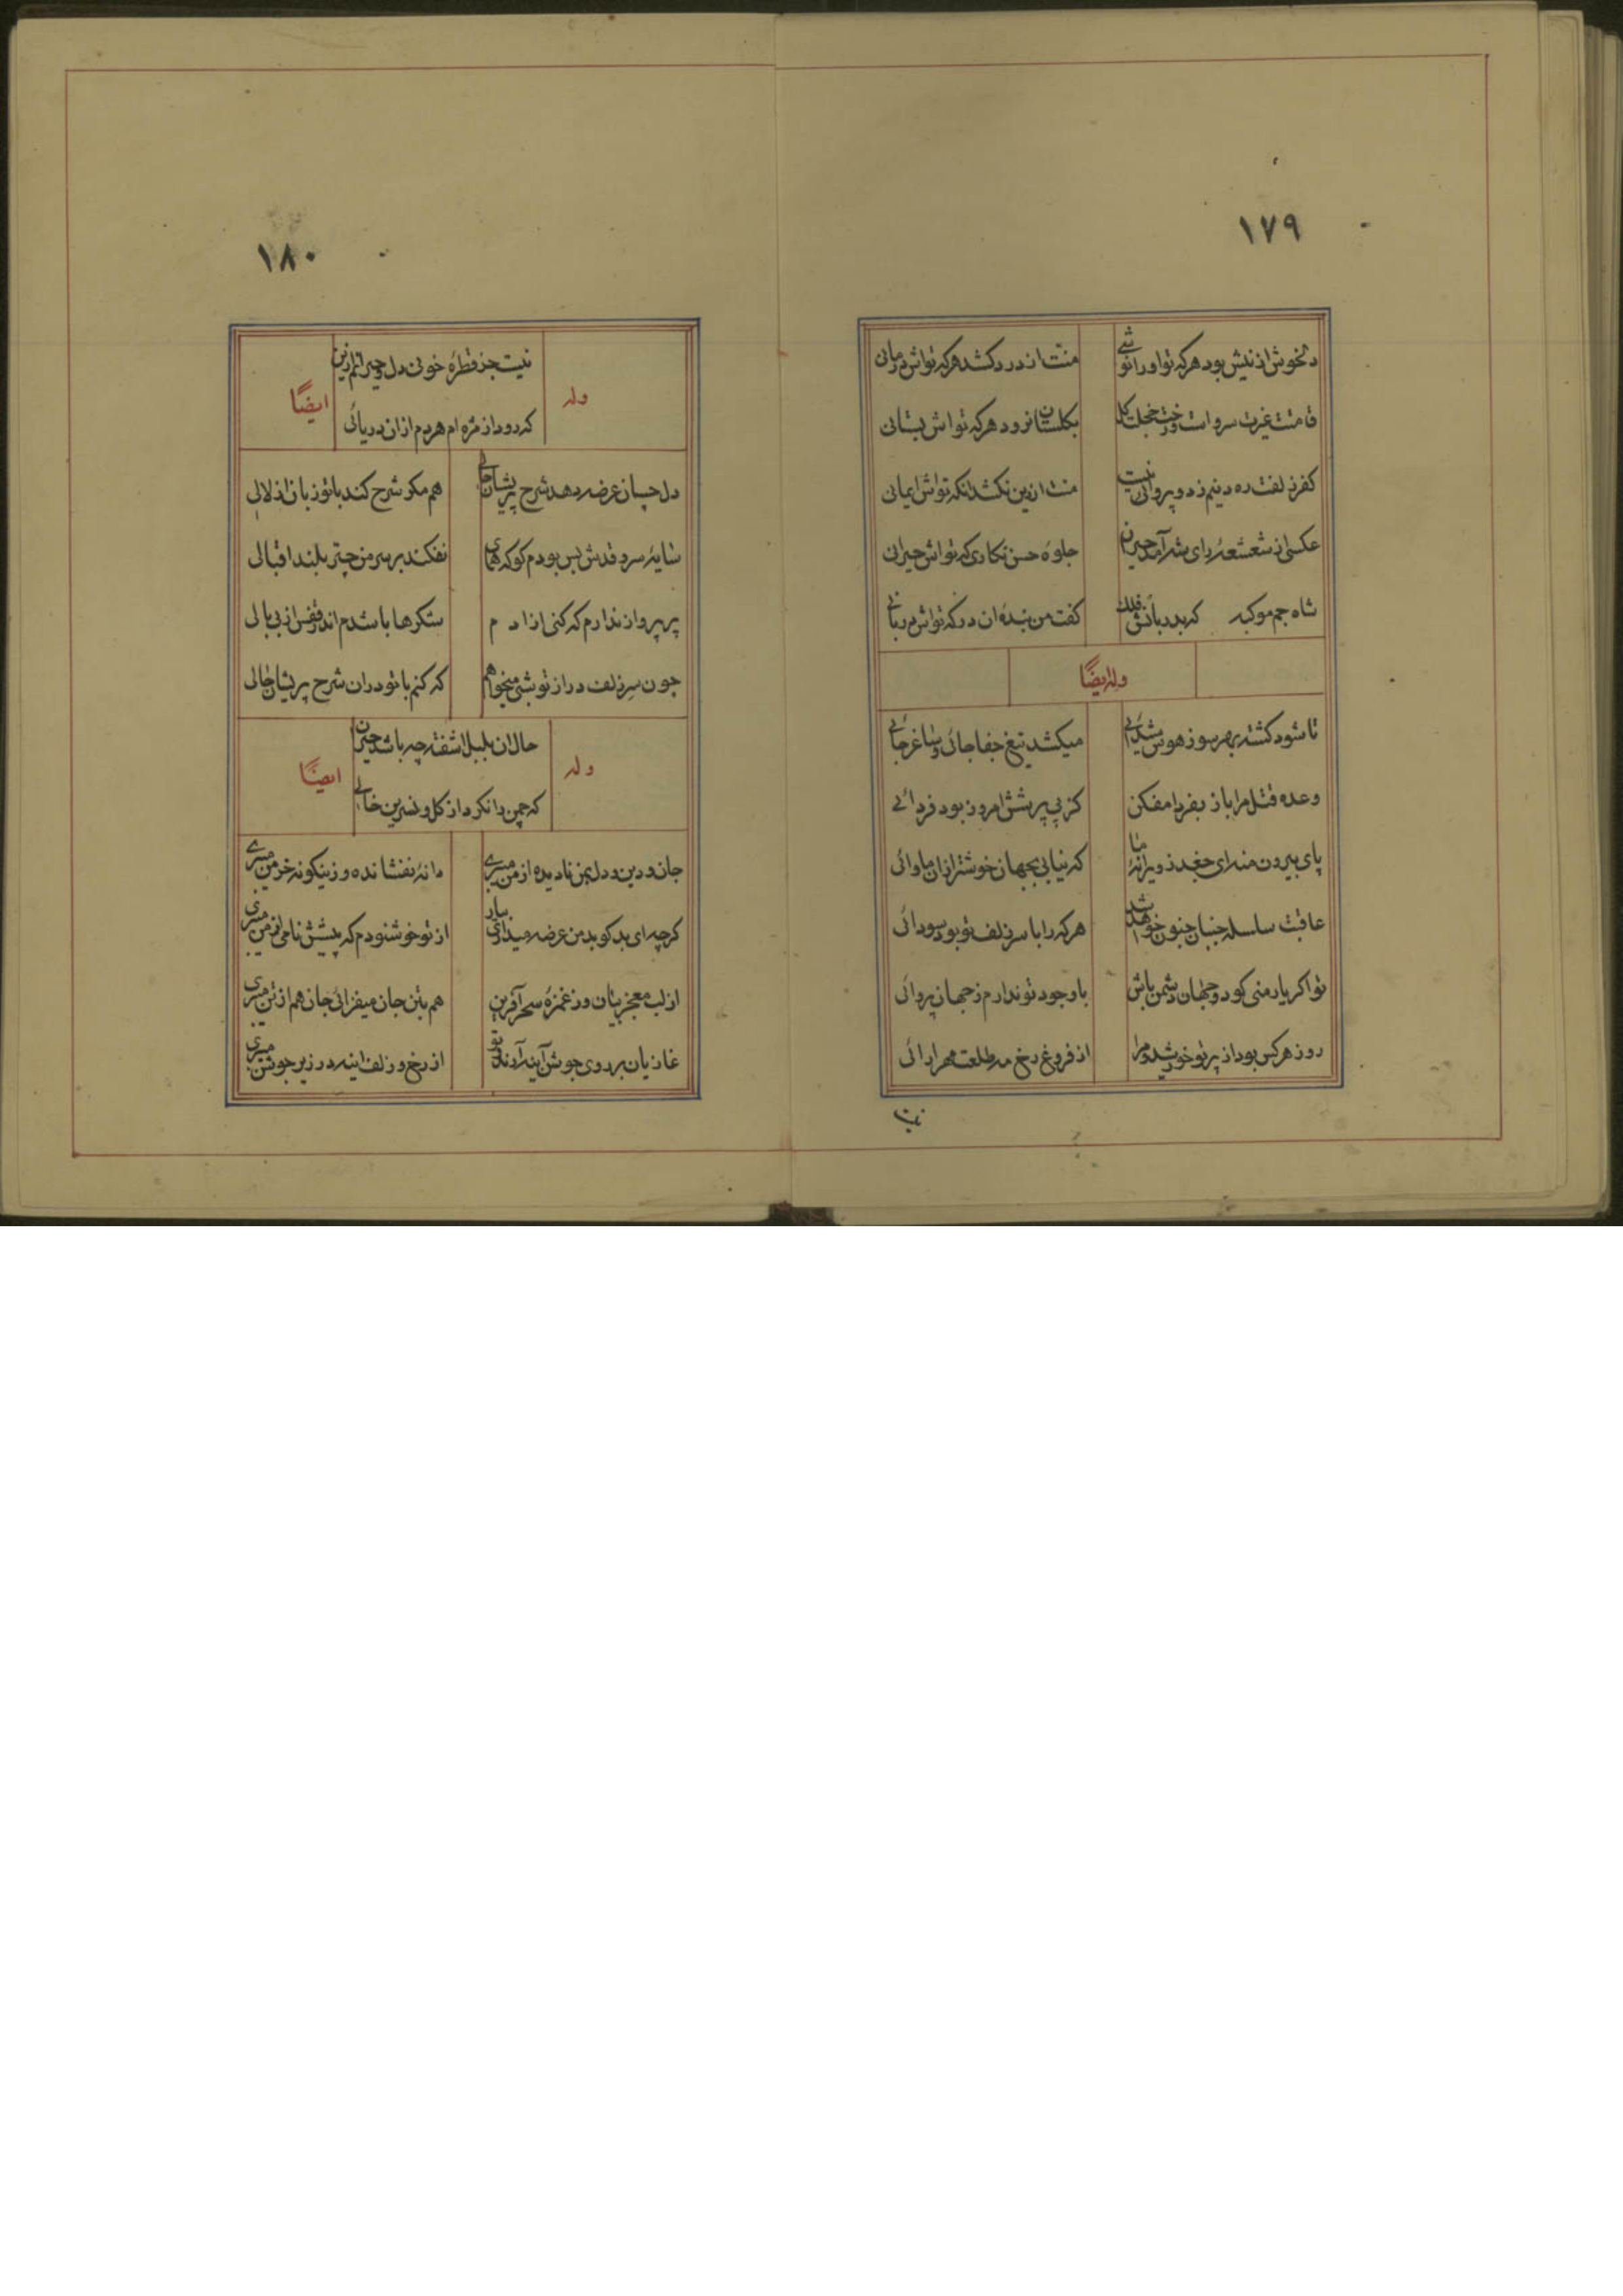 ١٧٩
دلخوش از نیش بود هرکه تو او را نوشی
منت از درد کشد هرکه تواش درمانی
قامتت غیرت سرو است و رخت خجلت کل
بکلستان نرود هرکه تواش بستانی
کفر زلفت ره دینم زد و پروائی نیست
منت از دین نکشد انکه تواش ایمانی
عکسی از شعشعهٔ رای شه آمد حیران
جلوهٔ حسن نکاری که تواش حیرانی
شاه جم موکبه که بدربانش فلک
کفت من بندهٔ ان در که تواش دربانی
وله ایضًا
تا شود کشته بهر سو ز هوس شیدائی
میکشد تیغ جفا جائی و ساغر جائی
وعده قتل مرا باز بفردا مفکن
کز پی پرسش امروز بود فردائی
پای بیرون منه ای جغد ز ویرانهٔ ما
که نیابی بجهان خوشتر ازان ماوائی
عاقبت سلسله جنبان جنون خواهد شد
هرکه را با سر زلف تو بود سودائی
تو اکر یار منی کو دو جهان دشمن باش
با وجود تو ندارم ز جهان پروائی
روز هرکس بود از پرتو خورشید و مرا
از فروغ رخ مه طلعت مهرارائی
نیست
١٨٠
نیست جز قطرهٔ خونی دل و حیرانم ازین
وله
ایضًا
که رود از مژه ام هردم ازان دریائی
دل چسان عرضه دهد شرح پریشان حالی
هم مکر شرح کند با تو زبان از لالی
سایهٔ سرو قدش بس بودم کو که همای
نفکند بر سر من چتر بلند اقبالی
پر پرواز ندارم که کنی ازادم
شکرها باشدم اندر قفس از بی بالی
چون سر زلف دراز تو شبی میخواهم
که کنم با تو دران شرح پریشان حالی
حال ان بلبل اشفته چه باشد حیران
وله
ایضًا
که چمن را نکرد از کل و نسرین خالی
جان و دین و دل بمن نادیده از من میبری
دانهٔ نفشانده و زینکونه خرمن میبری
کرچه ای بدکو بد من عرضه میداری بیار
از تو خوشنودم که پیشش نامی از من میبری
از لب معجز بیان وز غمزهٔ سحر آفرین
هم بتن جان میفزائی جان هم از تن میبری
غازیان بر روی جوشن آینه آرند و تو
از رخ و زلف اینه در زیر جوشن میبری